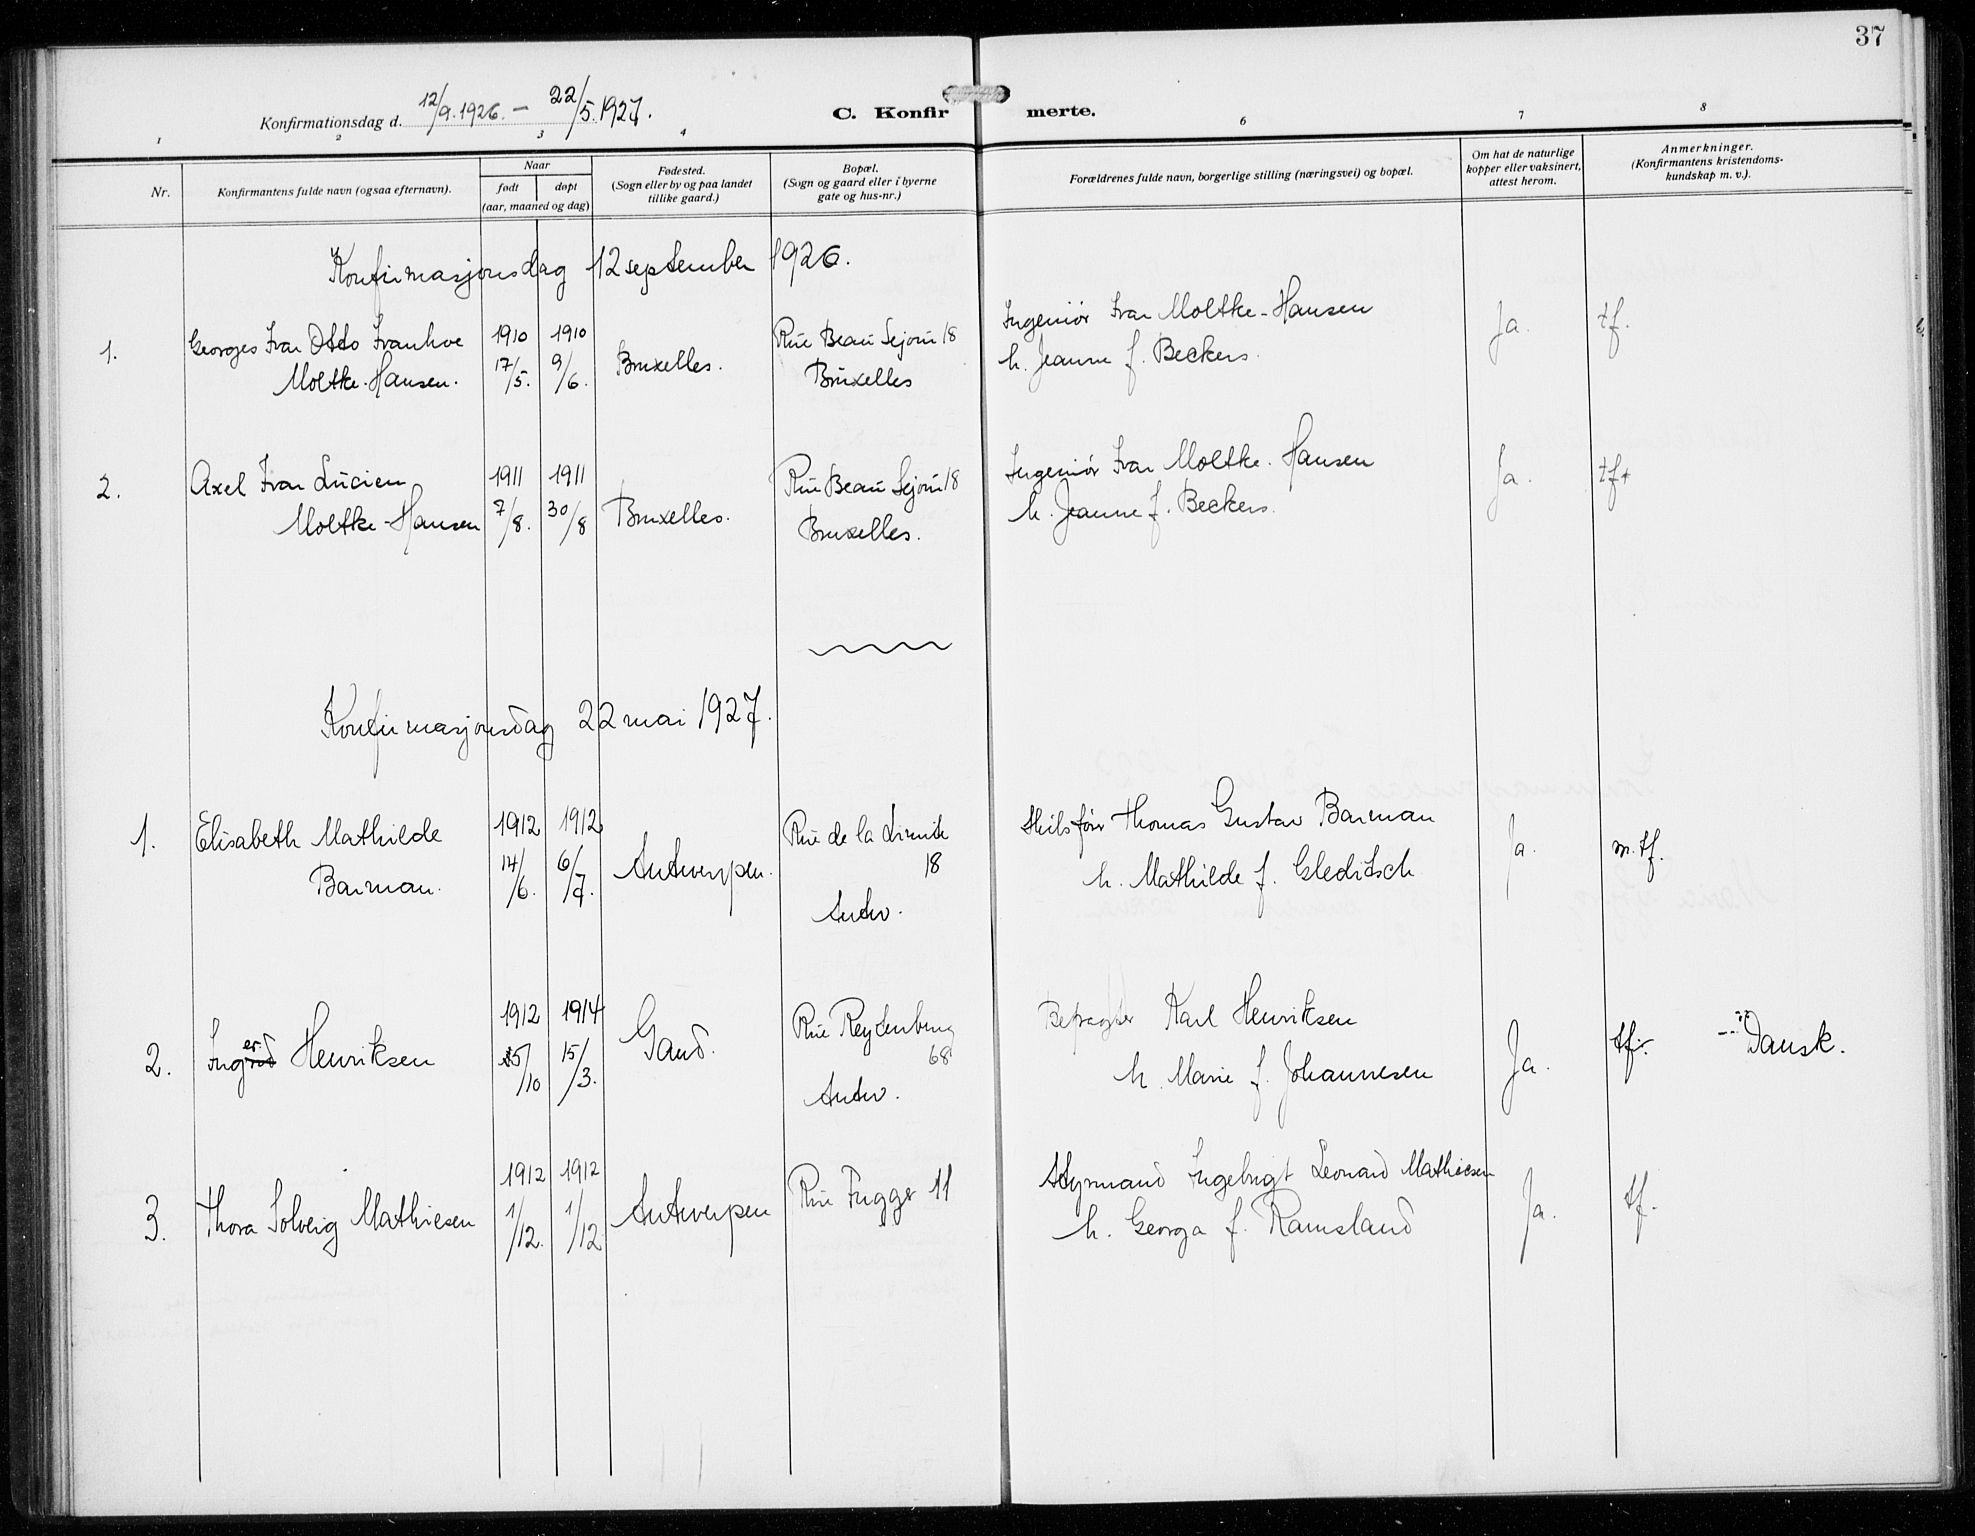 37
Konfirmationsdag d. 12/9.1926. – 22/5.1927.
C. Konfirmerte.
1 2 3 4 6 7 8
Nr.
Konfirmantens fulde navn (ogsaa efternavn).
Naar
født døpt
(aar, maaned og dag)
Fødested.
(Sogn eller by og paa landet
tillike gaard.)
Bopæl.
(Sogn og gaard eller i byerne
gate og hus-nr.)
Forældrenes fulde navn, borgerlige stilling (næringsvei) og bopæl.
Om hat de naturlige
kopper eller vaksinert,
attest herom.
Anmerkninger.
(Konfirmantens kristendoms-
kundskap m. v.).
Konfirmasjonsdag 12 september 1926.
1. Georges Ivar Otto Ivanhoe 1910 1910 Rue Beau Sejour 18 Ingeniør Ivar Moltke-Hansen Ja. tf.
Moltke-Hansen. 17/5. 9/6. Bruxelles. Bruxelles h. Jeanne f. Beckers.
2. Axel Ivar Lucien 1911 1911 Rue Beau Sejour 18 Ingeniør Ivar Moltke-Hansen Ja. tf+
Moltke-Hansen 7/8. 30/8 Bruxelles. Bruxelles. h. Jeanne f. Beckers.
Konfirmasjonsdag 22 mai 1927.
1. Elisabeth Mathilde 1912 1912 Rue de la Limite Skibsfører Thomas Gustav Barman Ja. m.tf.
Barman. 14/6. 6/7. Antwerpen. 18 h. Mathilde f. Gleditsch
Antw.
2. Inger Henriksen 1912 1914 Gand. Rue Reydenburg Befragter Karl Henriksen Ja. tf. Dansk.
15/10 15/3. 68 h. Marie f. Johannesen
Antw.
3. Thora Solveig Mathiesen 1912 1912 Antwerpen Rue Fugger 11 Styrmand Ingebrigt Leonard Mathiesen Ja. tf.
1/12. 1/12 h. Georga f. Ramsland